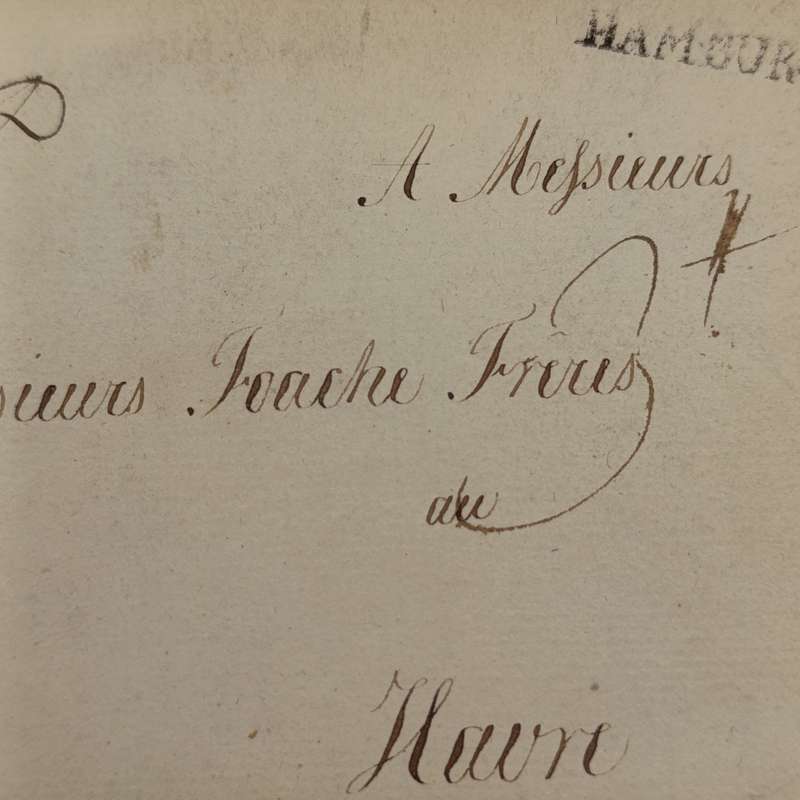 HAMBUR
A Messieurs
sieurs Foache Frêres
au
Havre